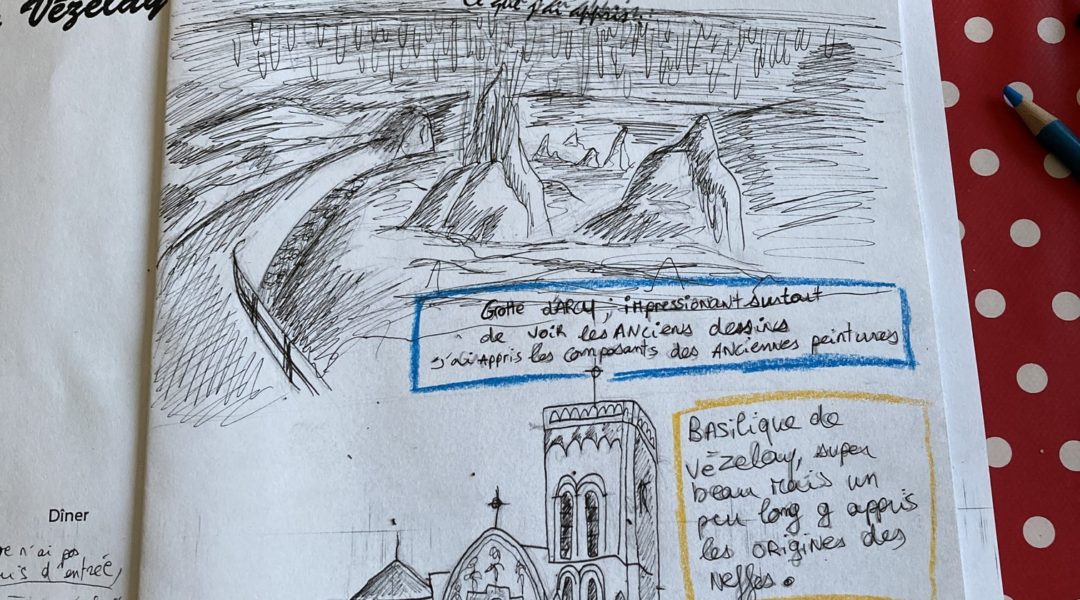 Vézelay
Ce que j'ai appris :
Grotte d'ARCY ; impressionant surtout
de voir les Anciens dessins
j'ai Appris les composants des Anciennes peintures
Basilique de
Vézelay, super
beau mais un
peu long g appris
les origines des
Neffes.
Dîner
n'ai pas
d'entrée,